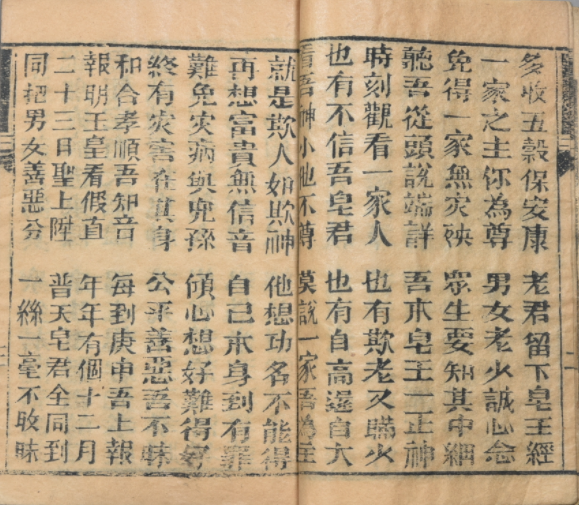 多收五穀保安康　老君留下皂王經
一家之主你為尊　男女老少誠心念
免得一家無灾殃　眾生要知其中細
聽吾從頭說端詳　吾本皂王一正神
時刻觀看一家人　也有欺老又瞞少
也有不信吾皂君　也有自高逞自大
看吾神小他不尊　莫說一家吾為主
就是欺人如欺神　他想功名不能得
再想富貴無信音　自己本身到有罪
難免灾病與兒孫　傾心想好難得好
終有灾害在其身　公平善惡吾不昧
和合孝順吾知音　每到庚申吾上報
報明王皇看假直　年年有個十二月
二十三日聖上陞　普天皂君全同到
同把男女善惡分　一絲一毫不敢昧